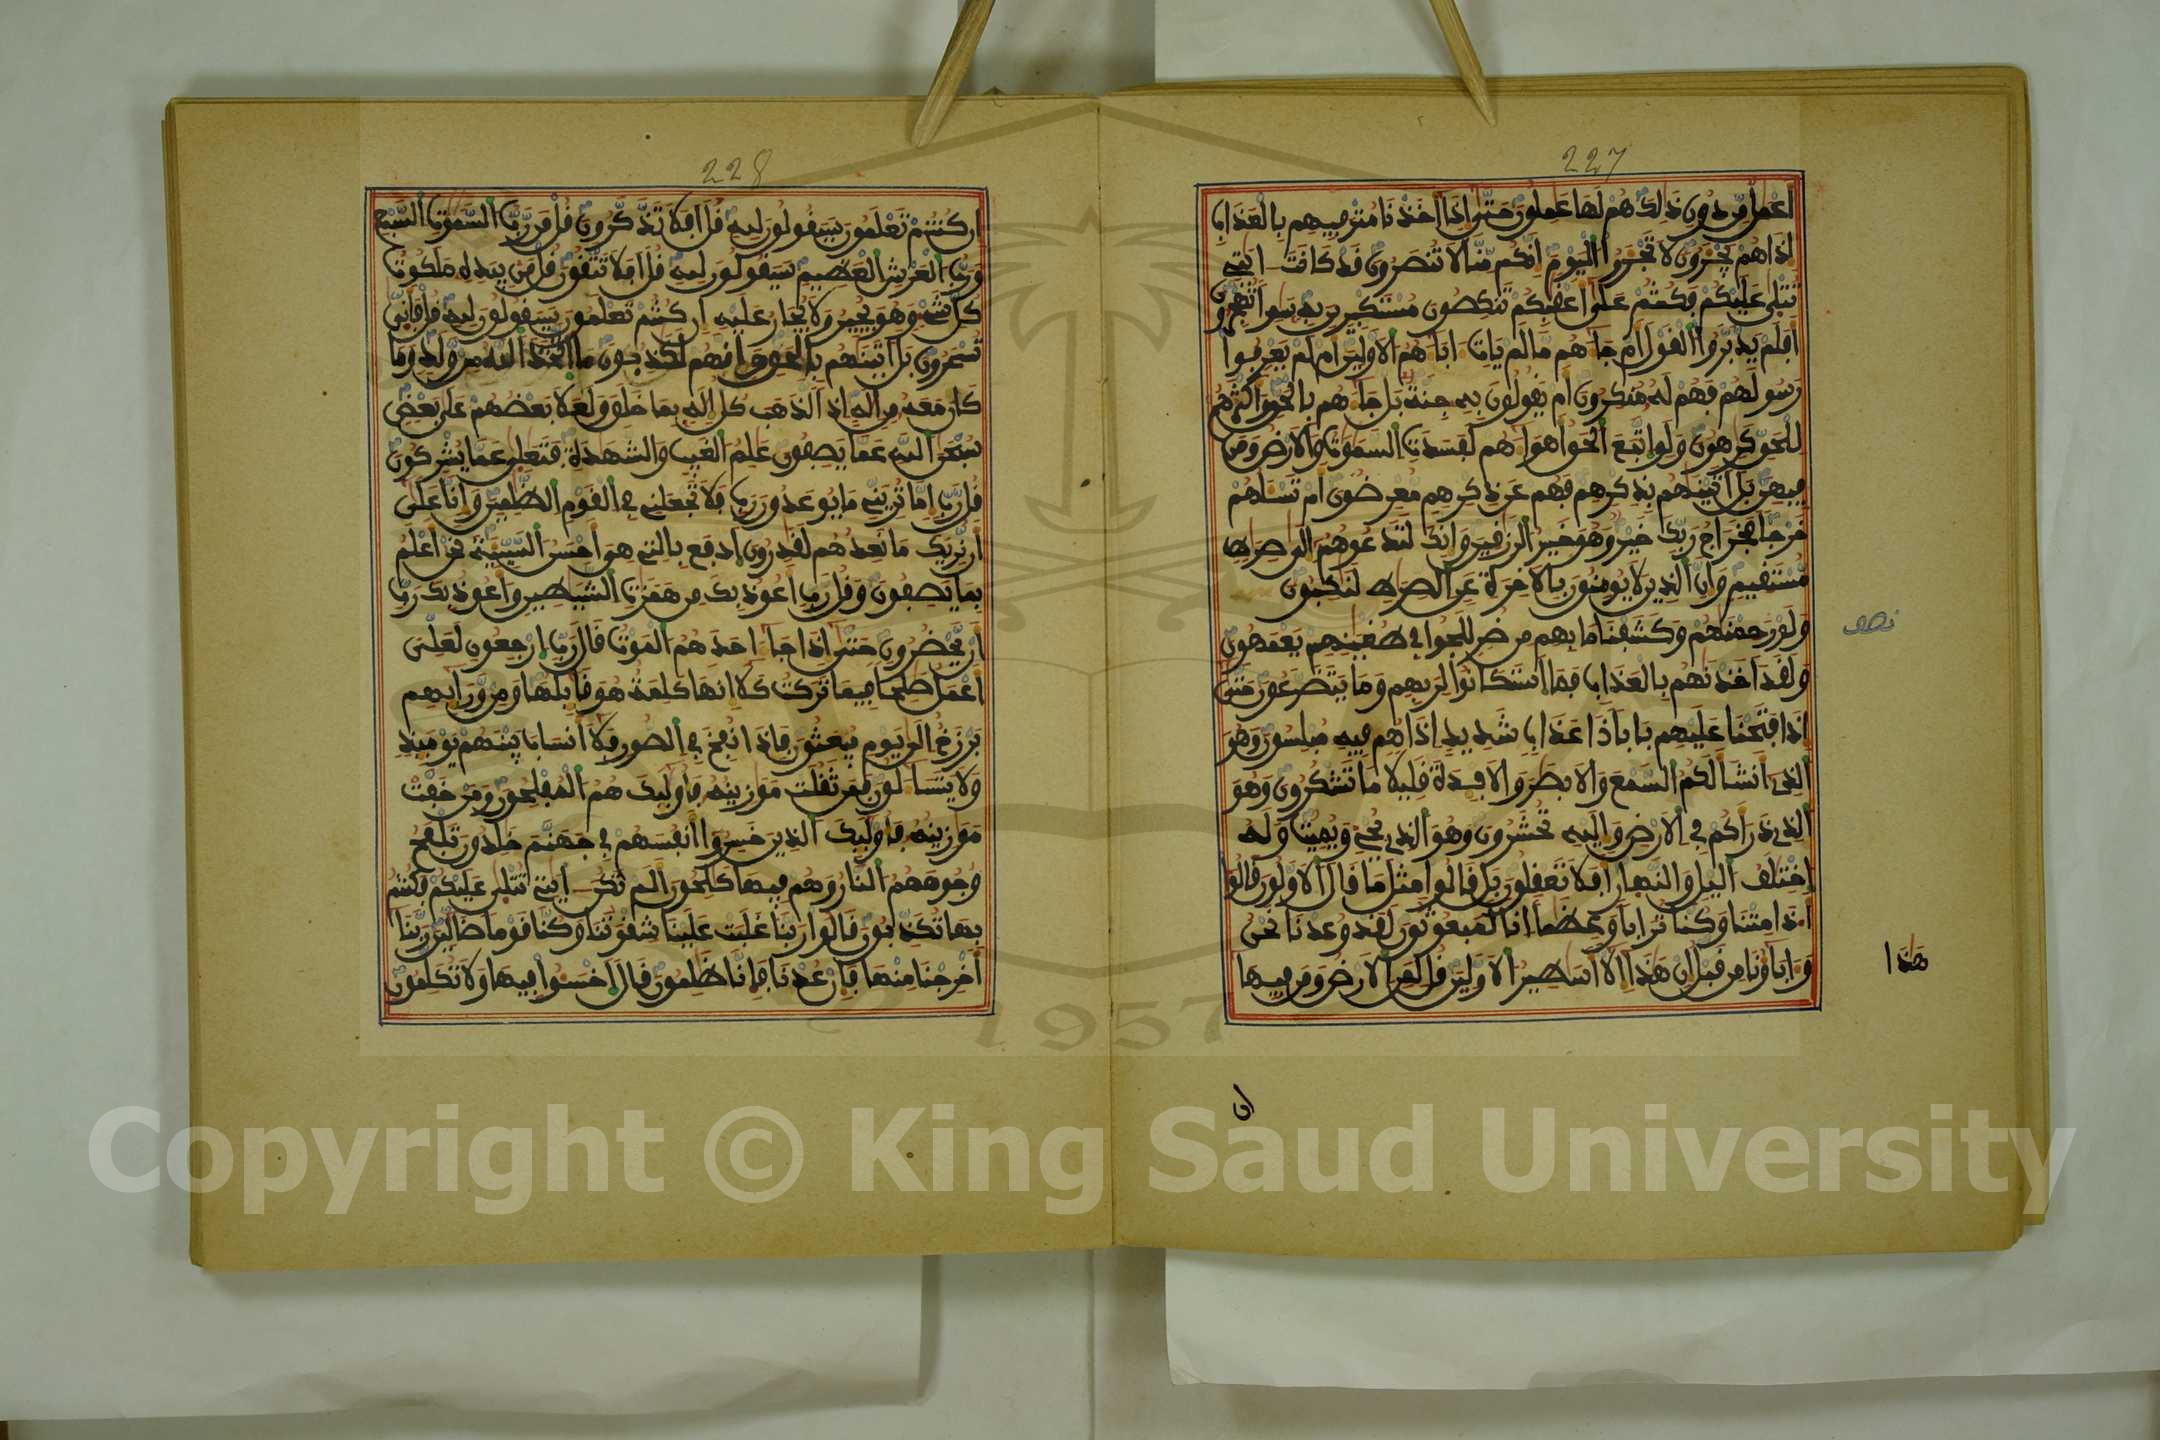 227
اعمل من دون ذلك هم لها عملون حتى اذا اخذنا مترفيهم بالعذاب
اذا هم يجرون لا تجروا اليوم انكم منا لا تنصرون قد كانت ايتى
تتلى عليكم فكنتم على اعقبكم تنكصون مستكبرين به سمرا تهجرون
افلم يدبروا القول ام جاءهم ما لم يات اباءهم الاولين ام لم يعرفوا
رسولهم فهم له منكرون ام يقولون به جنة بل جاءهم بالحق واكثرهم
للحق كرهون ولو اتبع الحق اهواءهم لفسدت السموت والارض ومن
فيهن بل اتينهم بذكرهم فهم عن ذكرهم معرضون ام تسلهم
خرجا فخراج ربك خير وهو خير الرزقين وانك لتدعوهم الى صراط
مستقيم وان الذين لا يومنون بالاخرة عن الصرط لنكبون
ولو رحمنهم وكشفنا ما بهم من ضر للجوا فى طغينهم يعمهون
نصف
ولقد اخذنهم بالعذاب فما استكانوا لربهم وما يتضرعون حتى
اذا فتحنا عليهم بابا ذا عذاب شديد اذا هم فيه مبلسون وهو
الذى انشا لكم السمع والابصر والافدة قليلا ما تشكرون وهو
الذى ذراكم فى الارض واليه تحشرون وهو الذى يحى ويميت وله
اختلف اليل والنهار افلا تعقلون بل قالوا مثل ما قال الاولون قالوا
اذا متنا وكنا ترابا وعظما انا لمبعوثون لقد وعدنا نحن
وءاباونا من قبل ان هذا الا اسطير الاولين قل لمن الارض ومن فيها
هذا
ان
228
ان كنتم تعلمون سيقولون لله قل افلا تذكرون قل من رب السموت السبع
ورب العرش العظيم سيقولون لله قل افلا تتقون قل من بيده ملكوت
كل شىء وهو يجير ولا يجار عليه ان كنتم تعلمون سيقولون لله قل فانى
تسحرون بل اتينهم بالحق وانهم لكذبون ما اتخذ الله من ولد وما
كان معه من اله اذا لذهب كل اله بما خلق ولعلا بعضهم على بعض
سبحن الله عما يصفون علم الغيب والشهدة فتعلى عما يشركون
قل رب اما ترينى ما يوعدون رب فلا تجعلنى فى القوم الظلمين وانا على
ان نريك ما نعدهم لقدرون ادفع بالتى هى احسن السيية نحن اعلم
بما يصفون وقل رب اعوذ بك من همزت الشيطين واعوذ بك رب
ان يحضرون حتى اذا جاء احدهم الموت قال رب ارجعون لعلى
اعمل صلحا فيما تركت كلا انها كلمة هو قايلها ومن ورايهم
برزخ الى يوم يبعثون فاذا نفخ فى الصور فلا انساب بينهم يوميذ
ولا يتساءلون فمن ثقلت موزينه فاوليك هم المفلحون ومن خفت
موزينه فاوليك الذين خسروا انفسهم فى جهنم خلدون تلفح
وجوههم النار وهم فيها كلحون الم تكن ايتى تتلى عليكم فكنتم
بها تكذبون قالوا ربنا غلبت علينا شقوتنا وكنا قوما ضالين ربنا
اخرجنا منها فان عدنا فانا ظلمون قال اخسوا فيها ولا تكلمون
1957
Copyright © King Saud University